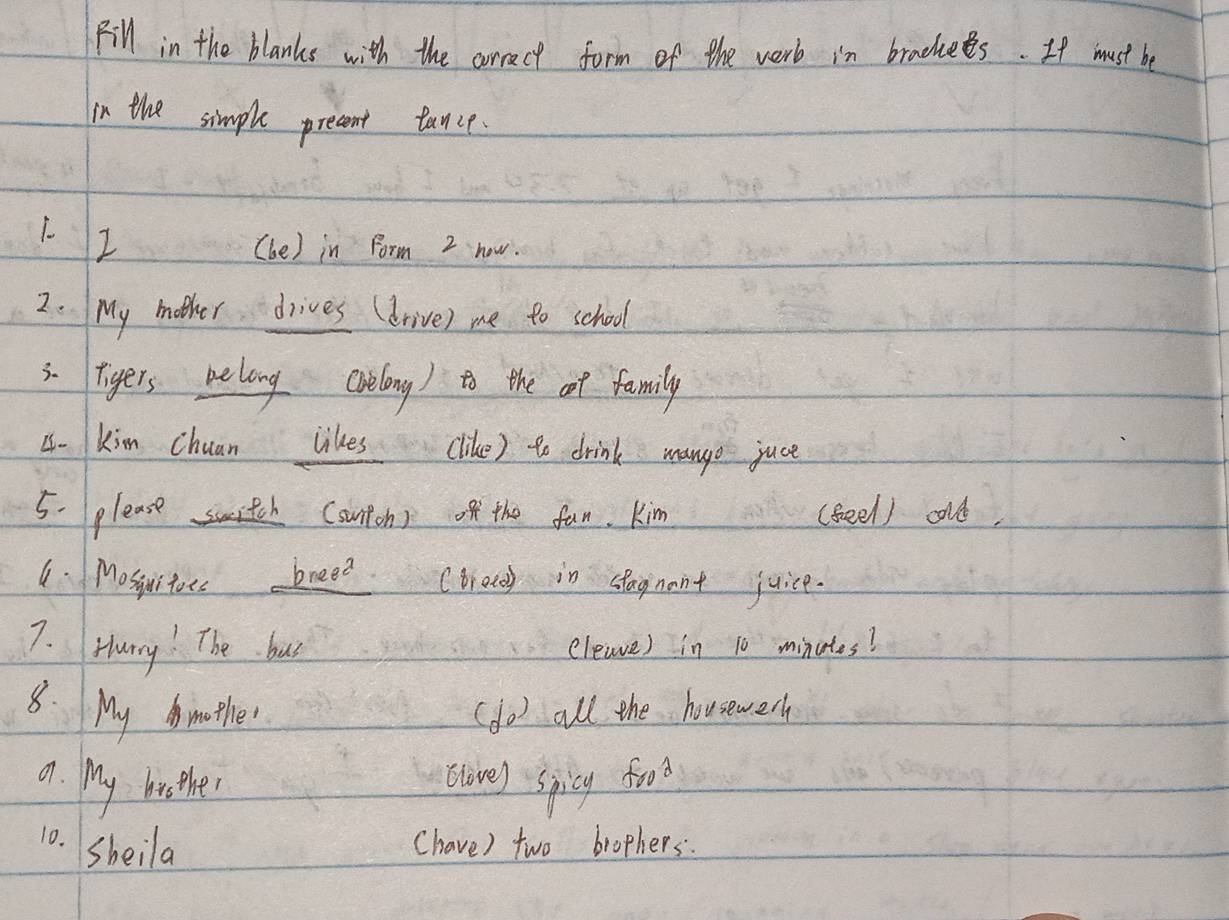 Fill in the blanks with the correct form of the verb in brackets. It must be
in the simple present tance.
1. I (be) in Form 2 now.
2. My mother drives (drive) me to school
3. Tigers belong (belong) to the cat family
4. Kim Chuan likes (like) to drink mango juce
5. please switch (switch) off the fan. Kim (feel) cold.
6. Mosquitoes breed (breed) in stagnant juice.
7. Hurry! The bus (leave) in 10 minutes!
8. My mother (do) all the housework
9. My brother (love) spicy food
10. Sheila (have) two brophers.